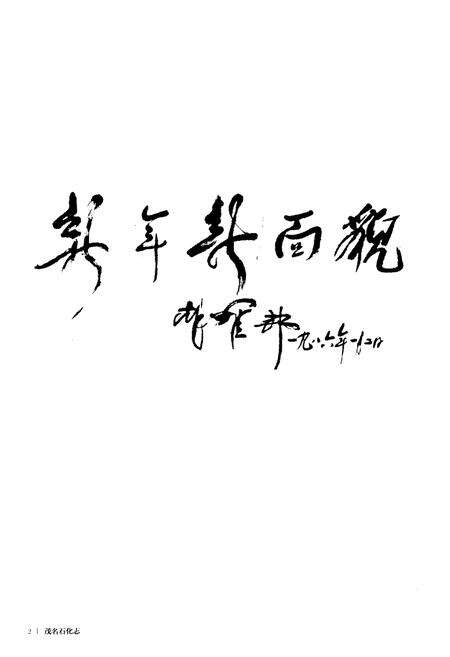 新年新面貌
胡耀邦 一九八六年一月二日
2 | 茂名石化志